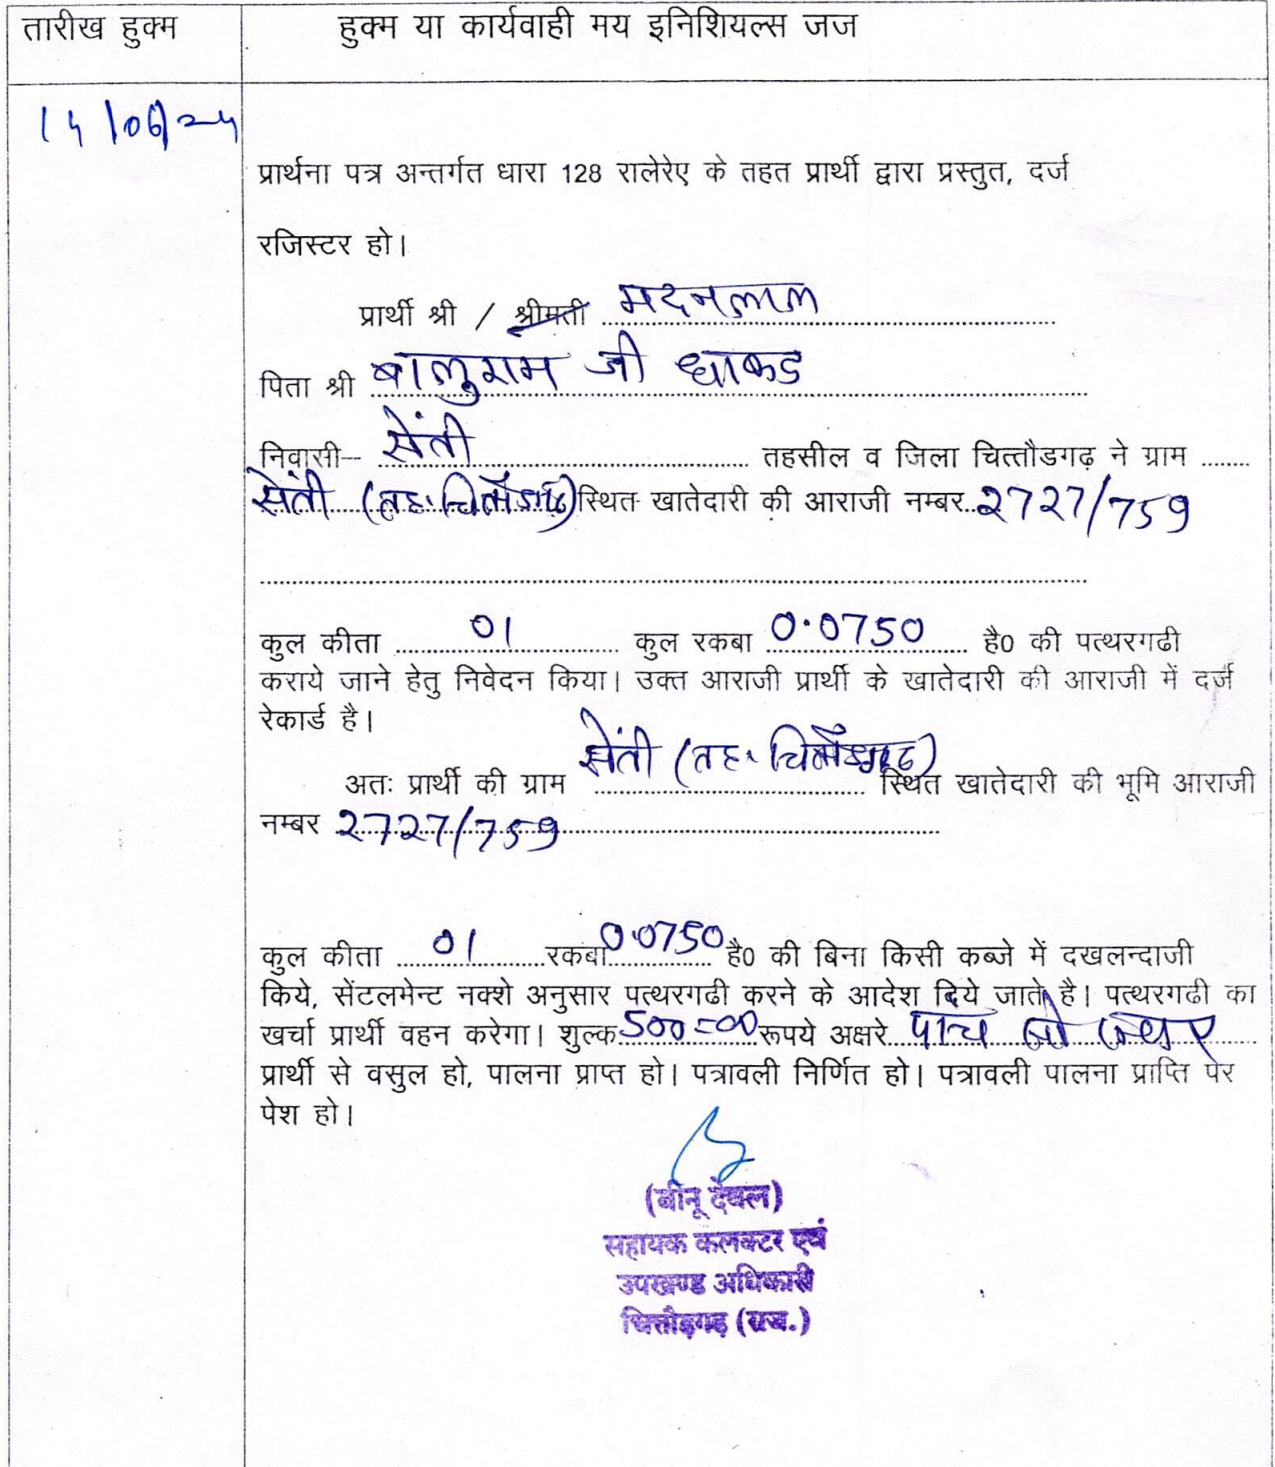 तारीख हुक्म
हुक्म या कार्यवाही मय इनिशियल्स जज
14/06/24
प्रार्थना पत्र अन्तर्गत धारा 128 रालेरेए के तहत प्रार्थी द्वारा प्रस्तुत, दर्ज
रजिस्टर हो।
प्रार्थी श्री / श्रीमती मदनलाल
पिता श्री बालुराम जी धाकड
निवासी– सेंती तहसील व जिला चित्तौडगढ़ ने ग्राम ........
सेंती (तह. चित्तौडगढ) स्थित खातेदारी की आराजी नम्बर..2727/759
कुल कीता 01 कुल रकबा 0.0750 है0 की पत्थरगढी
कराये जाने हेतु निवेदन किया। उक्त आराजी प्रार्थी के खातेदारी की आराजी में दर्ज
रेकार्ड है।
अतः प्रार्थी की ग्राम सेंती (तह. चित्तौडगढ) स्थित खातेदारी की भूमि आराजी
नम्बर 2727/759
कुल कीता 01 रकबा 0.0750 है0 की बिना किसी कब्जे में दखलन्दाजी
किये, सेंटलमेन्ट नक्शे अनुसार पत्थरगढी करने के आदेश दिये जाते है। पत्थरगढी का
खर्चा प्रार्थी वहन करेगा। शुल्क 500=00 रूपये अक्षरे पांच सो रूपए
प्रार्थी से वसुल हो, पालना प्राप्त हो। पत्रावली निर्णित हो। पत्रावली पालना प्राप्ति पेर
पेश हो।
(बीनू देवल)
सहायक कलक्टर एवं
उपखण्ड अधिकारी
चित्तौड़गढ़ (राज.)